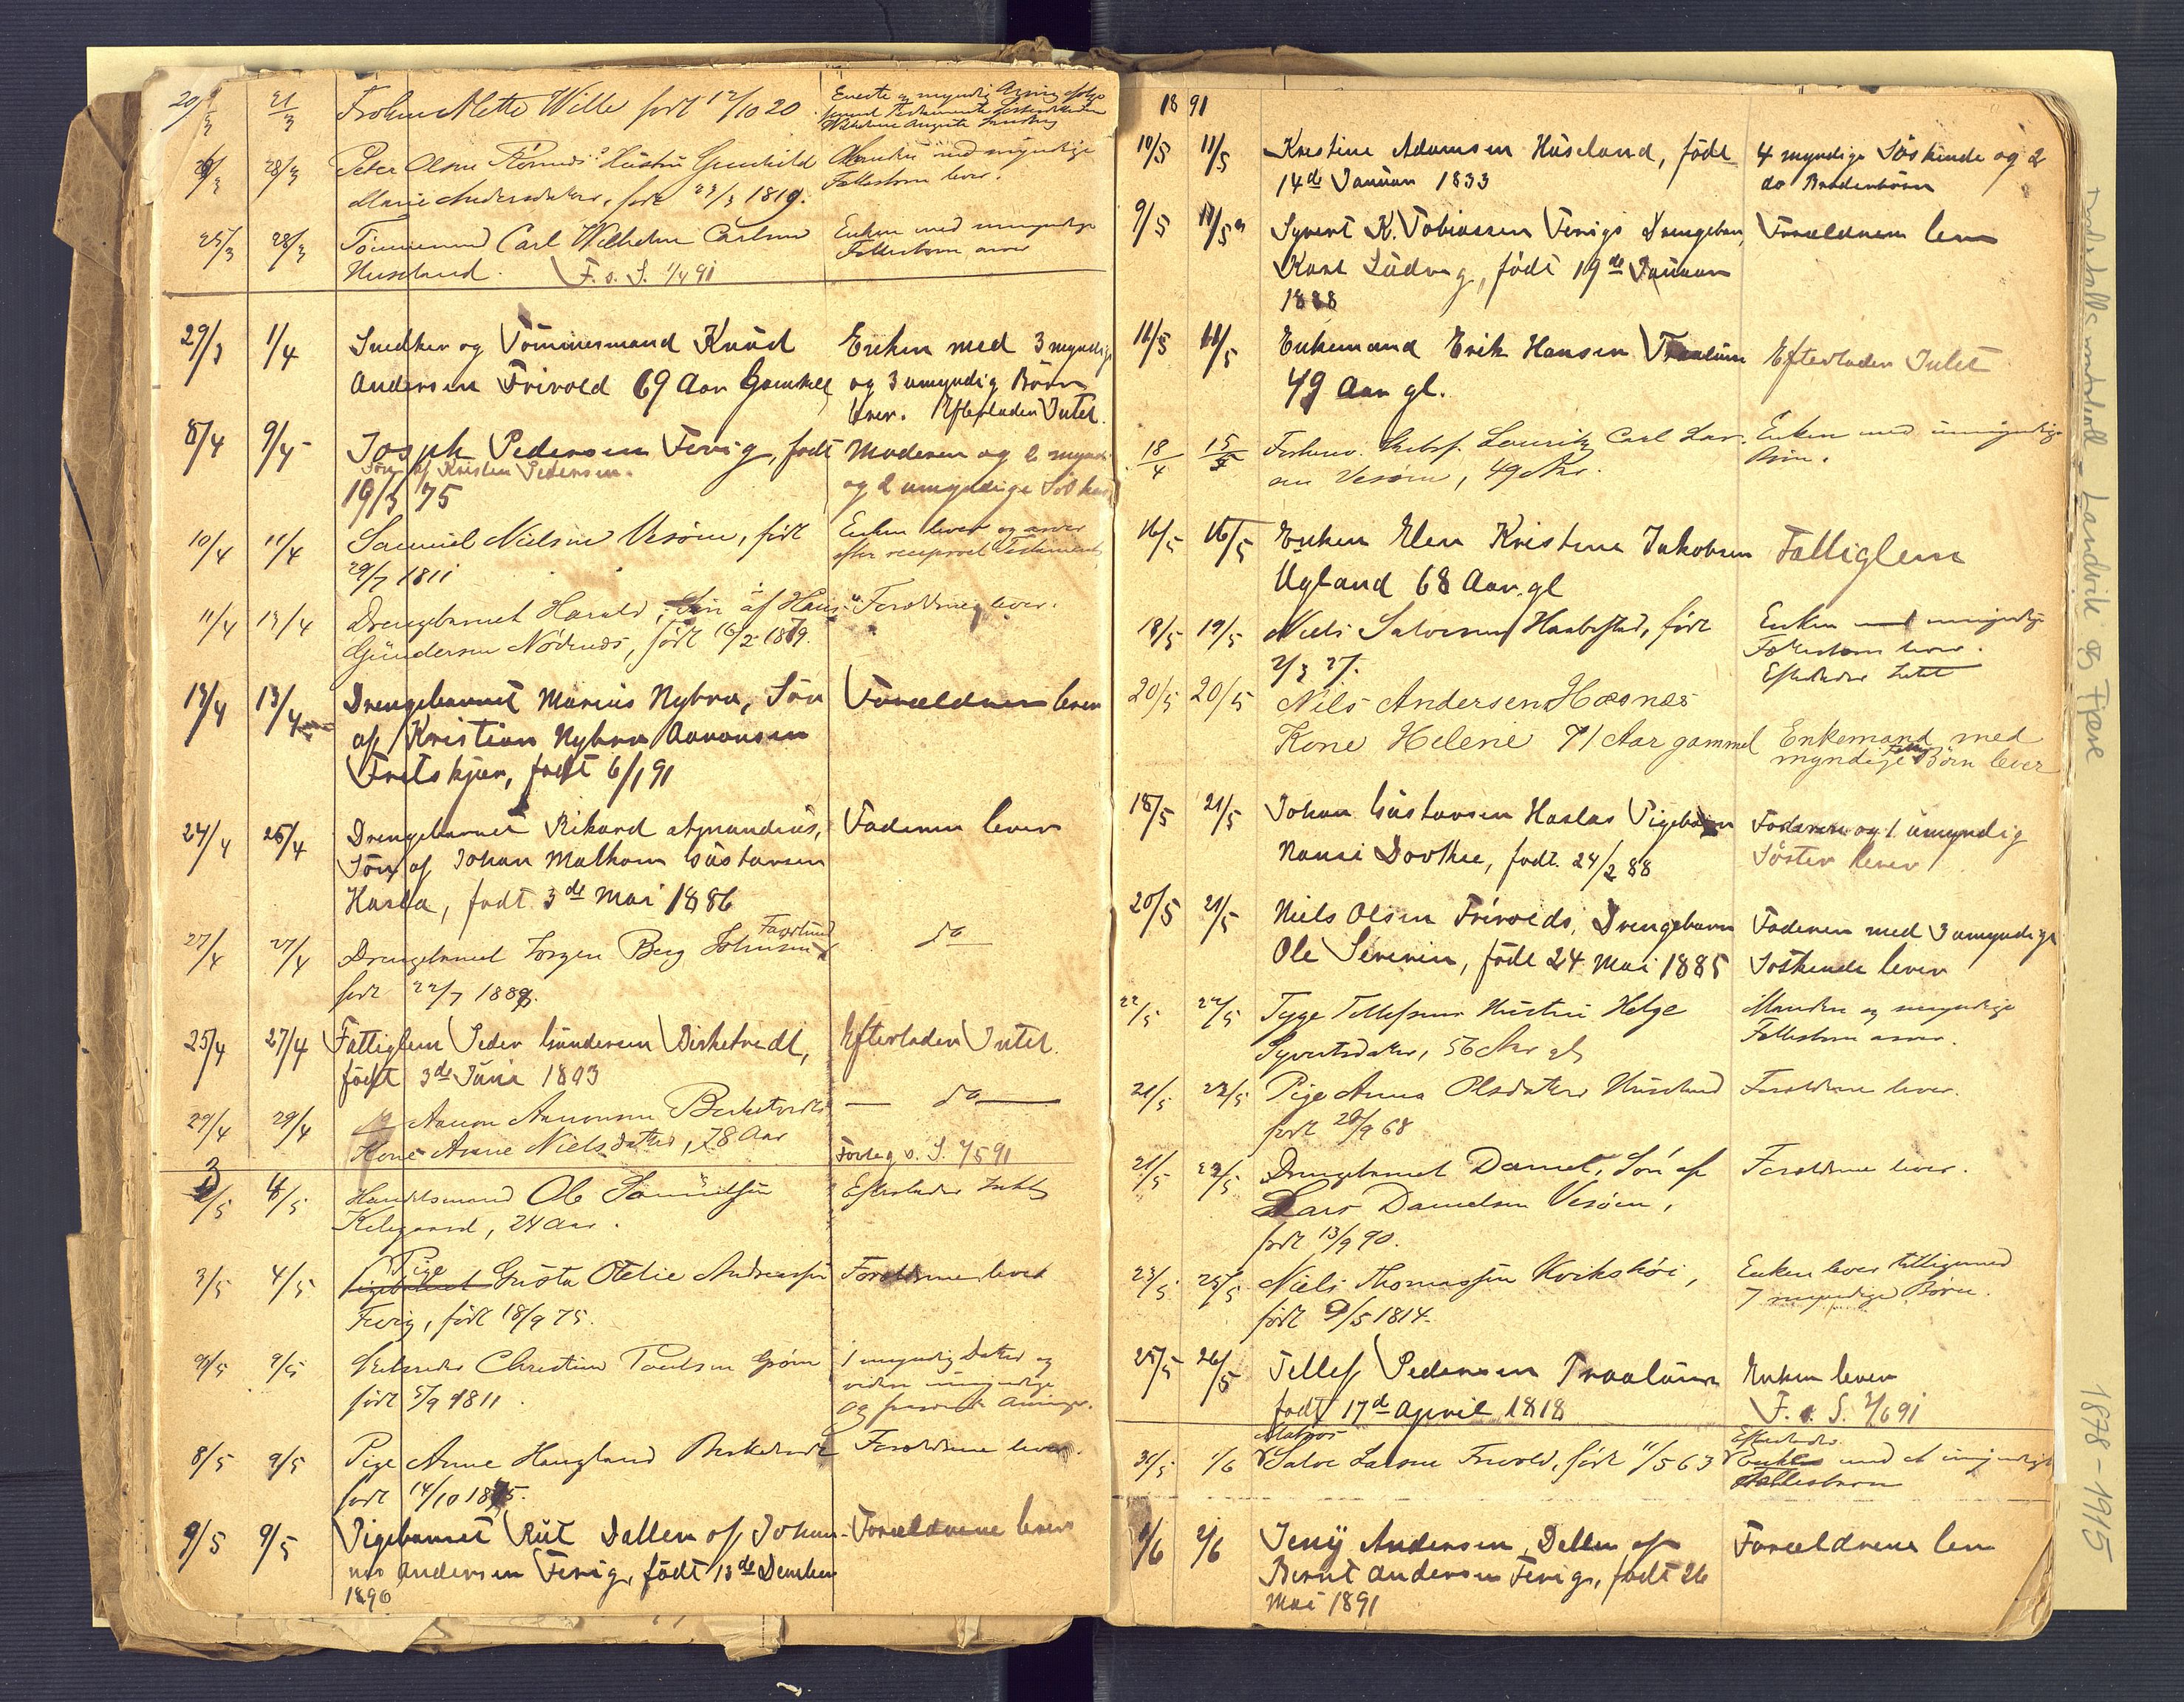 20/3 21/3 Frøken Mette Wille født 12/10 20.
28/3 Peter Olsen Hustru Gunhild
Marie Andersdatter, født 23/3 1819.
Manden med myndige
Fællesbørn lever.
25/3 28/3 Tømmermand Carl Wilhelm Carlsen
Huseland. F. o. S. 1/4 91
Enken med umyndige
Fællesbørn arver
29/3 1/4 Snedker og Tømmermand Knud
Andersen Frivold 69 Aar Gammel
Enken med 3 myndige
og 3 umyndig Børn
lever. Efterlader Intet.
8/4 9/4 Joseph Pedersen Fevig, født
Søn af Kristen Pedersen.
19/3 75
Moderen og 2 myndi
og 2 umyndige Søsken
10/4 11/4 Samuel Nielsen Vesøen, født
29/7 1811
Enken lever og arver
efter reciproct Testament
11/4 13/4 Drengebarnet Harald, Søn af Hans
Gundersen Nødenæs, født 16/2 1879.
Forældrene lever.
13/4 13/4 Drengebarnet Marius Nybro, Søn
af Kristian Nybro Aaronsen
født 6/1 91
Forældrene lever
24/4 25/4 Drengebarnet Rikard
Søn af Johan Malkom Gustavsen
Hasla, født 3de Mai 1886
Faderen lever
27/4 27/4 Drengebarnet Jørgen Berg Johnsen
født 22/7 1889.
do
25/4 27/4 Fattiglem Peder Gundersen Birketvedt,
født 3de Juni 1803
Efterlader Intet.
29/4 29/4 Aanon Aanonsen Birketvedts
Kone Anne Nielsdatter, 78 Aar
do
Forlag o. S. 1/5 91
3/5 4/5 Handelsmand Ole Samuelsen
Kilegaard, 24 Aar.
Efterlader Intet
3/5 4/5 Pige Gusta Otelie Andreassen
Fevig, født 18/9 75.
Forældrene lever
9/5 Christine Paulsen Grøm
født 5/9 1811.
1 myndig Datter og
8/5 9/5 Pige Anne Haugland Birketvedt
født 14/10 1875.
Forældrene lever.
9/5 9/5 Pigebarnet Rut Datter af Johan-
nes Andersen Fevig, født 13de December
1890
Forældrene lever
1891
10/5 11/5 Kristine Adamsen Huseland, født
14de Januar 1833
4 myndige Søskende og 2
do Broderbørn
9/5 11/5 Syvert K. Tobiassen Fevigs Drengebarn,
Karl Ludvig, født 19de Januar
1888
Forældrene lever
11/5 11/5 Enkemand Erik Hansen Traalum
49 Aar gl.
Efterlader Intet
18/4 15/5 Lauritz Carl Lar-
sen Vesøen, 49 Aar.
Enken med umyndige
Børn.
16/5 16/5 Enken Elen Kristine Jakobsen
Ugland 68 Aar gl
Fattiglem
18/5 19/5 Niels Salvesen Haabestad, født
2/3 27.
Enken umyndige
Fællesbørn lever.
Efterlader Intet
20/5 20/5 Nils Andersen Hæsnæs
Kone Helene 71 Aar gammel
Enkemand med
myndige Børn lever
18/5 21/5 Johan Gustavsen Haslas Pigebarn
Nansi Dorthe, født 24/2 88
Faderen og 1 umyndig
Søster lever
20/5 21/5 Niels Olsen Frivolds, Drengebarn
Ole Severin, født 24 Mai 1885
Faderen med 3 umyndige
Søskende lever
22/5 22/5 Tyge Tellefsens Hustru Helge
Syvertsdatter, 56 Aar gl
Manden og myndige
Fællesbørn arver.
21/5 23/5 Pige Anna Olsdatter Huseland
født 20/9 68
Forældrene lever.
21/5 23/5 Drengebarnet Daniel, Søn af
Lars Danielsen Vesøen,
født 13/9 90.
Forældrene lever.
23/5 25/5 Niels Thomassen Kvikshøi,
født 9/5 1814.
Enken lever tilligemed
7 myndige Børn.
25/5 26/5 Tellef Pedersen Traalum
født 17de April 1818
Enken lever
F. o. S. 1/6 91
31/5 1/6 Matros
Salve Larsen Frivold, født 11/5 63
Efterlader
Enke med et umyndigt
Fællesbarn
1/6 2/6 Jenny Andersen, Datter af
Bernt Andersen Fevig, født 26
Mai 1891
Forældrene lever
Landvik og Fjære
1878-1915